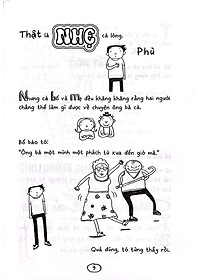 Thật là NHẸ cả lòng.
Phù
Nhưng cả bố và mẹ đều khăng khăng rằng hai người
chẳng thể làm gì được về chuyện ông bà cả.
Bố bảo tớ:
"Ông bà một mình một phách từ xưa đến giờ mà."
Quả đúng, tớ từng thấy rồi.
9